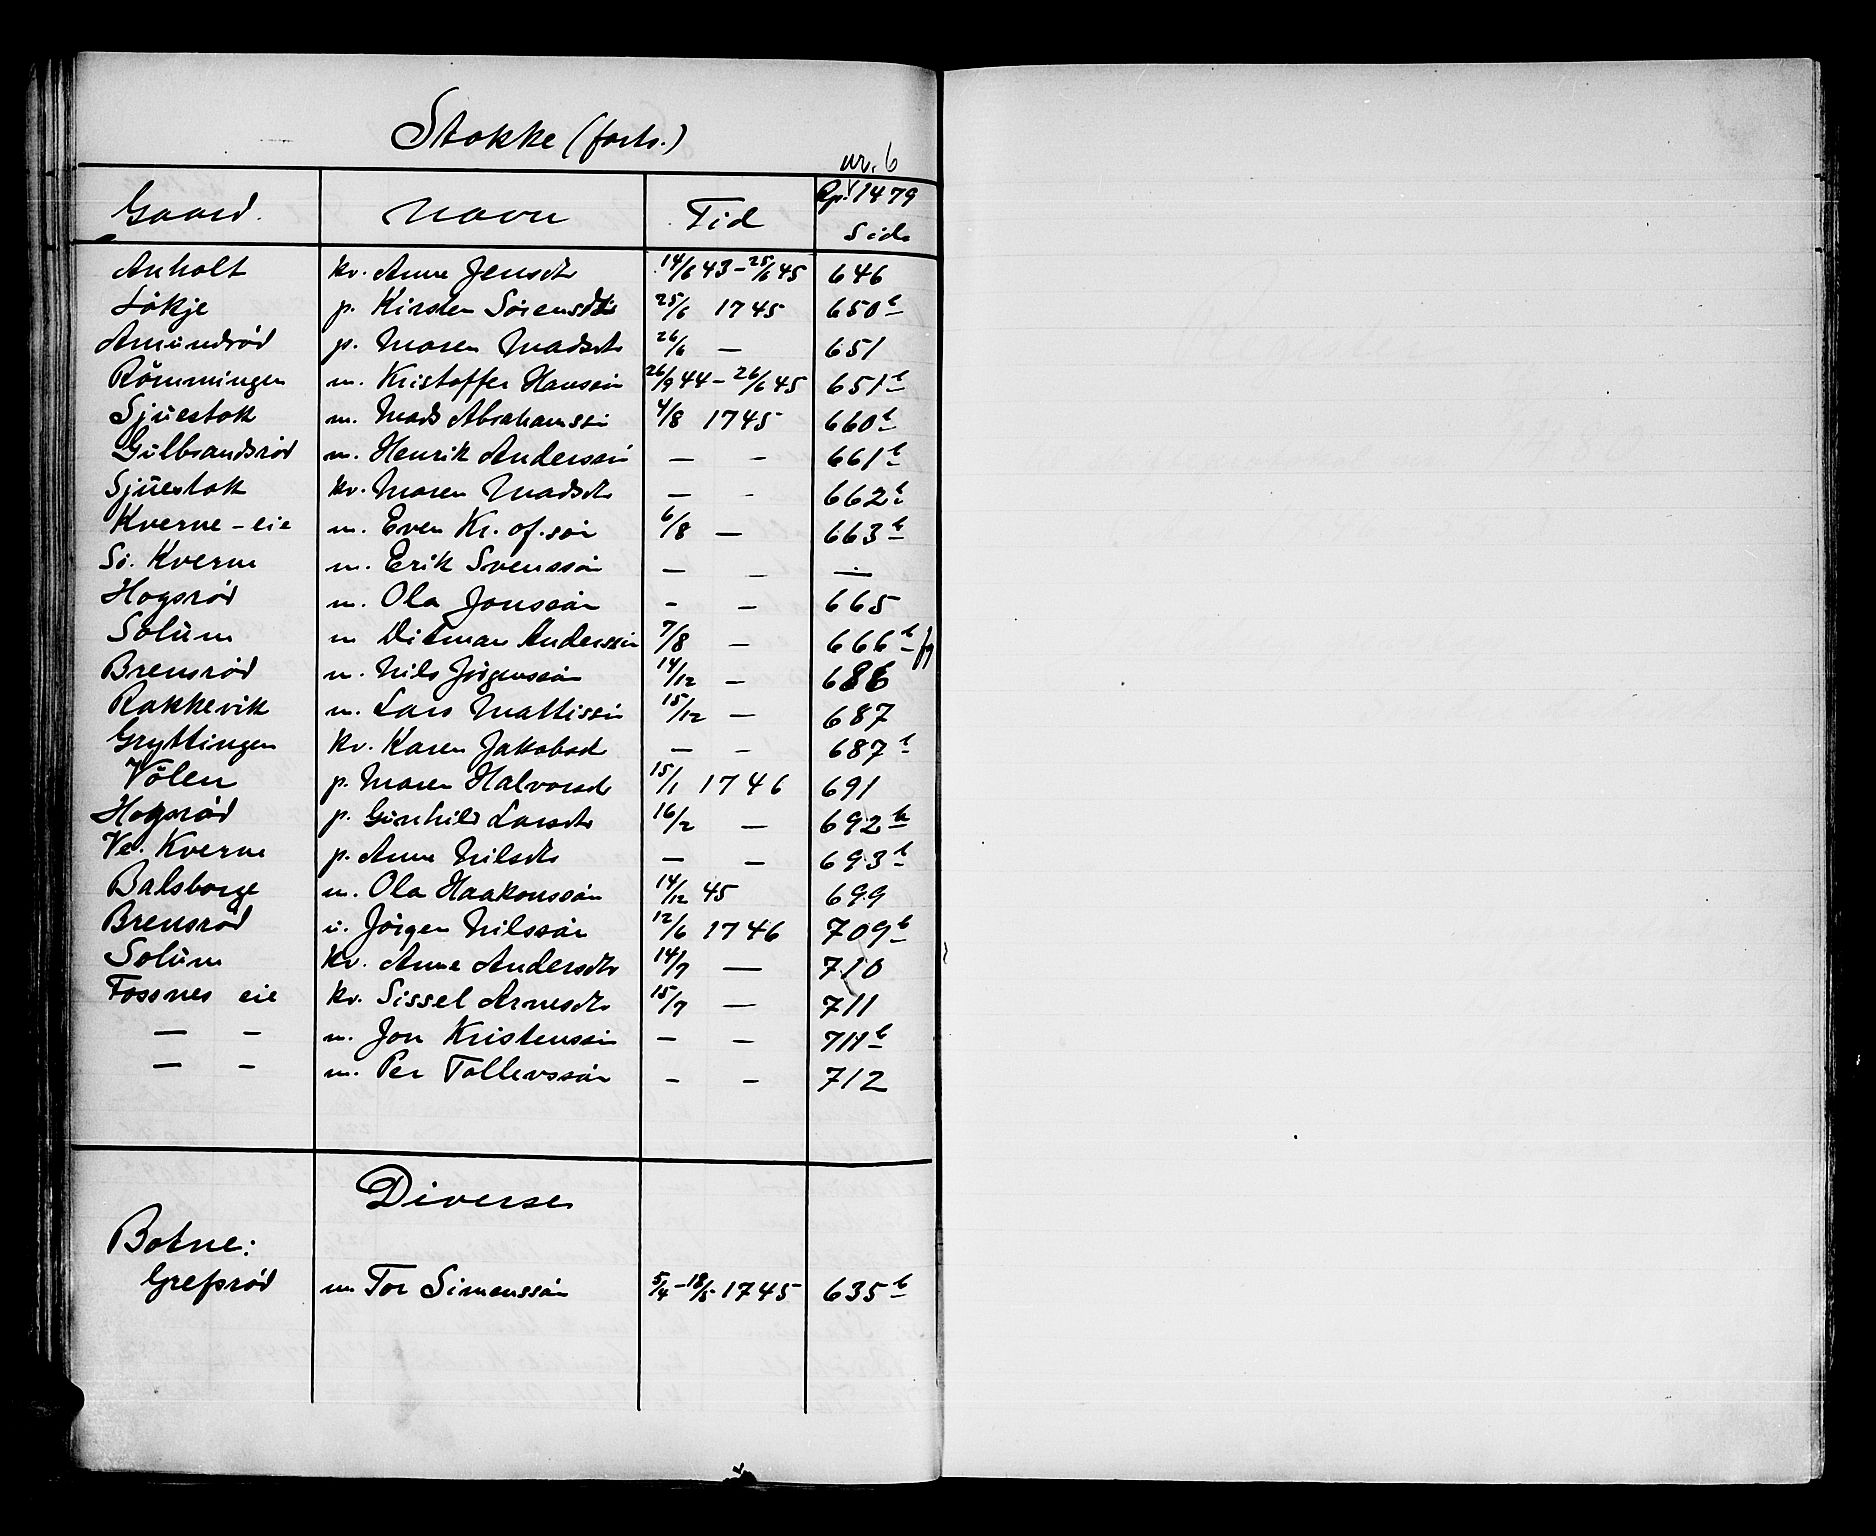 Stokke (forts.)
nr. 6
Gaard. Navn Tid Rp. 1479 Side
Anholt kv. Anne Jensdtr 14/6 43 - 25/6 45 646
Lökje p. Kirsten Sörensdtr 25/6 1745 650b
Amundröd p. Maren Madsdtr 26/6 — 651
Römmingen m. Kristoffer Hansön 26/9 44 - 26/6 45 651b
Sjuestok m. Mads Abrahamssön 4/8 1745 660b
Gulbrandsröd m. Henrik Anderssön — - 661b
Sjuestok kv. Maren Madsdtr — - 662b
Kverne - eie m. Even Kr.of.sön 6/8 — 663b
Sö. Kverne m. Erik Svenssön — — —
Hogsröd m. Ola Jonssön - — 665
Solum m Ditman Anderssön 7/8 — 666b fg
Brensröd m. Nils Jörgenssön 14/12 — 686
Rakkevik m. Lars Mattissön 15/12 — 687
Gryttingen kv. Karen Jakobsd — - 687b
Völen p. Maren Halvorsd 15/1 1746 691
Hogsröd p. Gunhild Larsdtr 16/2 — 692b
Ve. Kverne p. Anne Nilsdtr — — 693b
Balsborge m. Ola Haakonssön 14/12 45 699
Brensröd u. Jörgen Nilssön 12/6 1746 709b
Solum kv. Anne Andersdtr 14/7 — 710
Fossnes eie kv. Sissel Arnesdtr 15/7 — 711
— - m. Jon Kristenssön — — 711b
— - m. Per Tollevssön - - 712
Diverse
Botne:
Grefsröd m Tor Simenssön 5/4 - 18/5 1745 635b